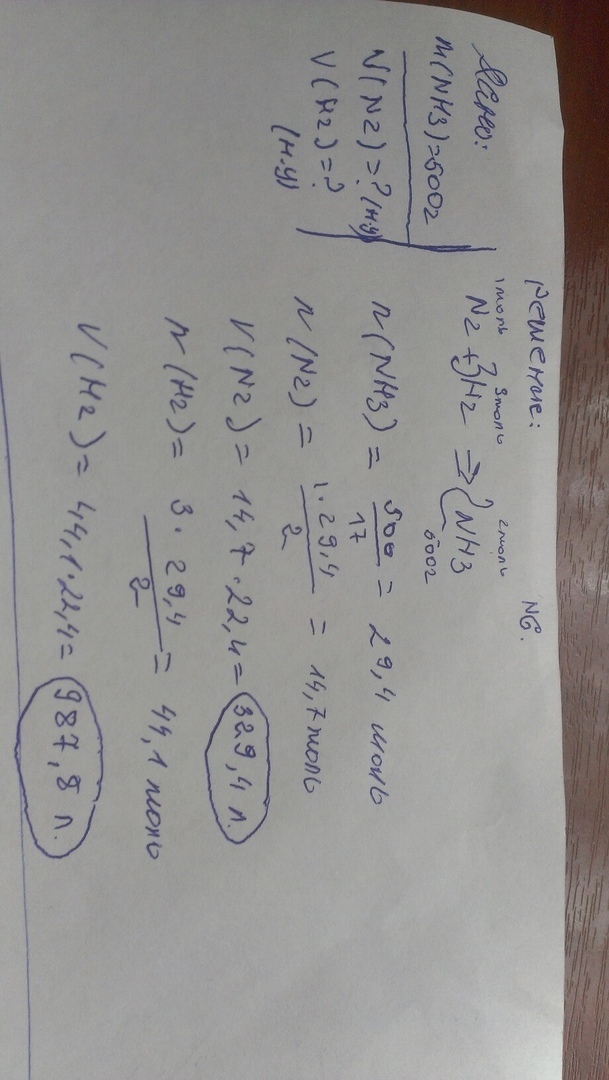 №6.
Дано:
m(NH3)=500г
V(N2)=? (н.у)
V(H2)=?
(н.у)
Решение:
1моль 3моль 2моль
N2 + 3H2 ⇒ 2NH3
500г
n(NH3) = 500/17 = 29,4 моль
n(N2) = 1·29,4/2 = 14,7моль
V(N2) = 14,7·22,4= 329,4 л.
n(H2) = 3·29,4/2 = 44,1 моль
V(H2) = 44,1·22,4= 987,8 л.